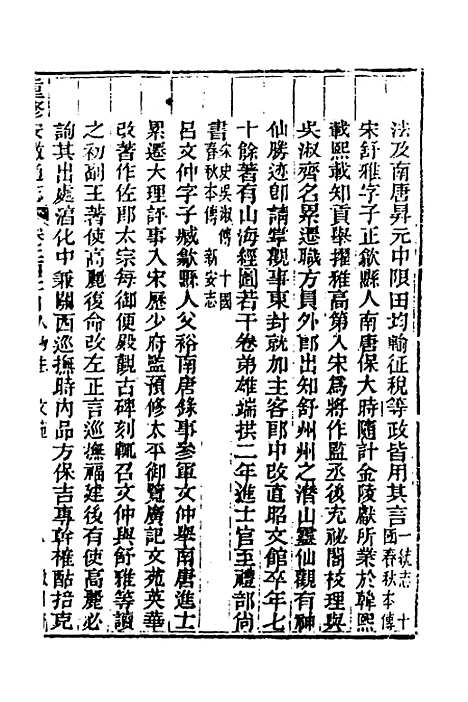 法及南唐昇元中限田均輸征稅等政皆用其言一統志十國春秋本傳
宋舒雅字子正歙縣人南唐保大時隨計金陵獻所業於韓熙
載熙載知貢舉擢雅高第入宋爲將作監丞後充祕閣校理與
吳淑齊名累遷職方員外郎出知舒州州之潛山靈仙觀有神
仙勝迹郎請掌觀事東封就加主客郎中改直昭文館卒年七
十餘著有山海經圖若干卷弟雄端拱二年進士官至禮部尙
書宋史吳淑傳十國春秋本傳新安志
呂文仲字子臧歙縣人父裕南唐錄事參軍文仲舉南唐進士
累遷大理評事入宋歷少府監預修太平御覽廣記文苑英華
改著作佐郎太宗每御便殿觀古碑刻輒召文仲與舒雅等讀
之初副王著使高麗復命改左正言巡撫福建後有使高麗必
詢其出處淳化中秉關西巡撫時內品方保吉專幹榷酤掊克
重修安徽通志